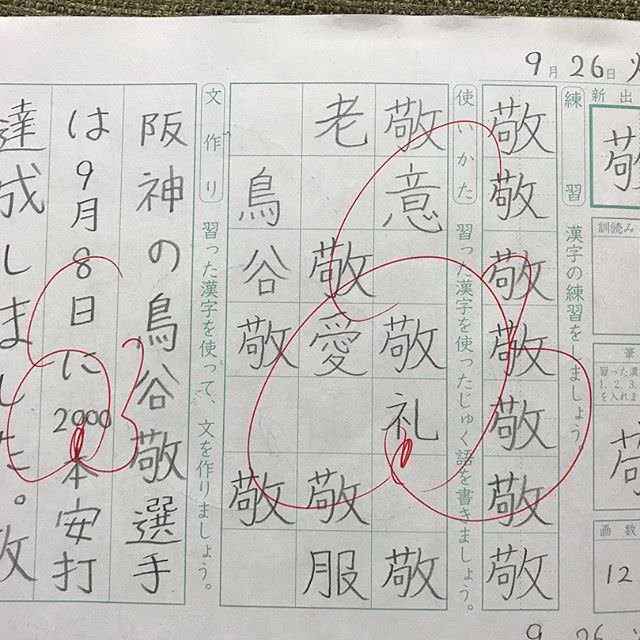 9月26日
新出
敬
訓読み
筆
習った漢
1、2、3、
を入れま
画数
12
練習 漢字の練習をしましょう。
敬敬敬敬敬敬敬
使いかた 習った漢字を使ったじゅく語を書きましょう。
敬意 敬礼 敬
老 敬愛 敬服
鳥谷敬 敬
文作り 習った漢字を使って、文を作りましょう。
阪神の鳥谷敬選手
は9月8日に2000本安打
達成しました。
9 26